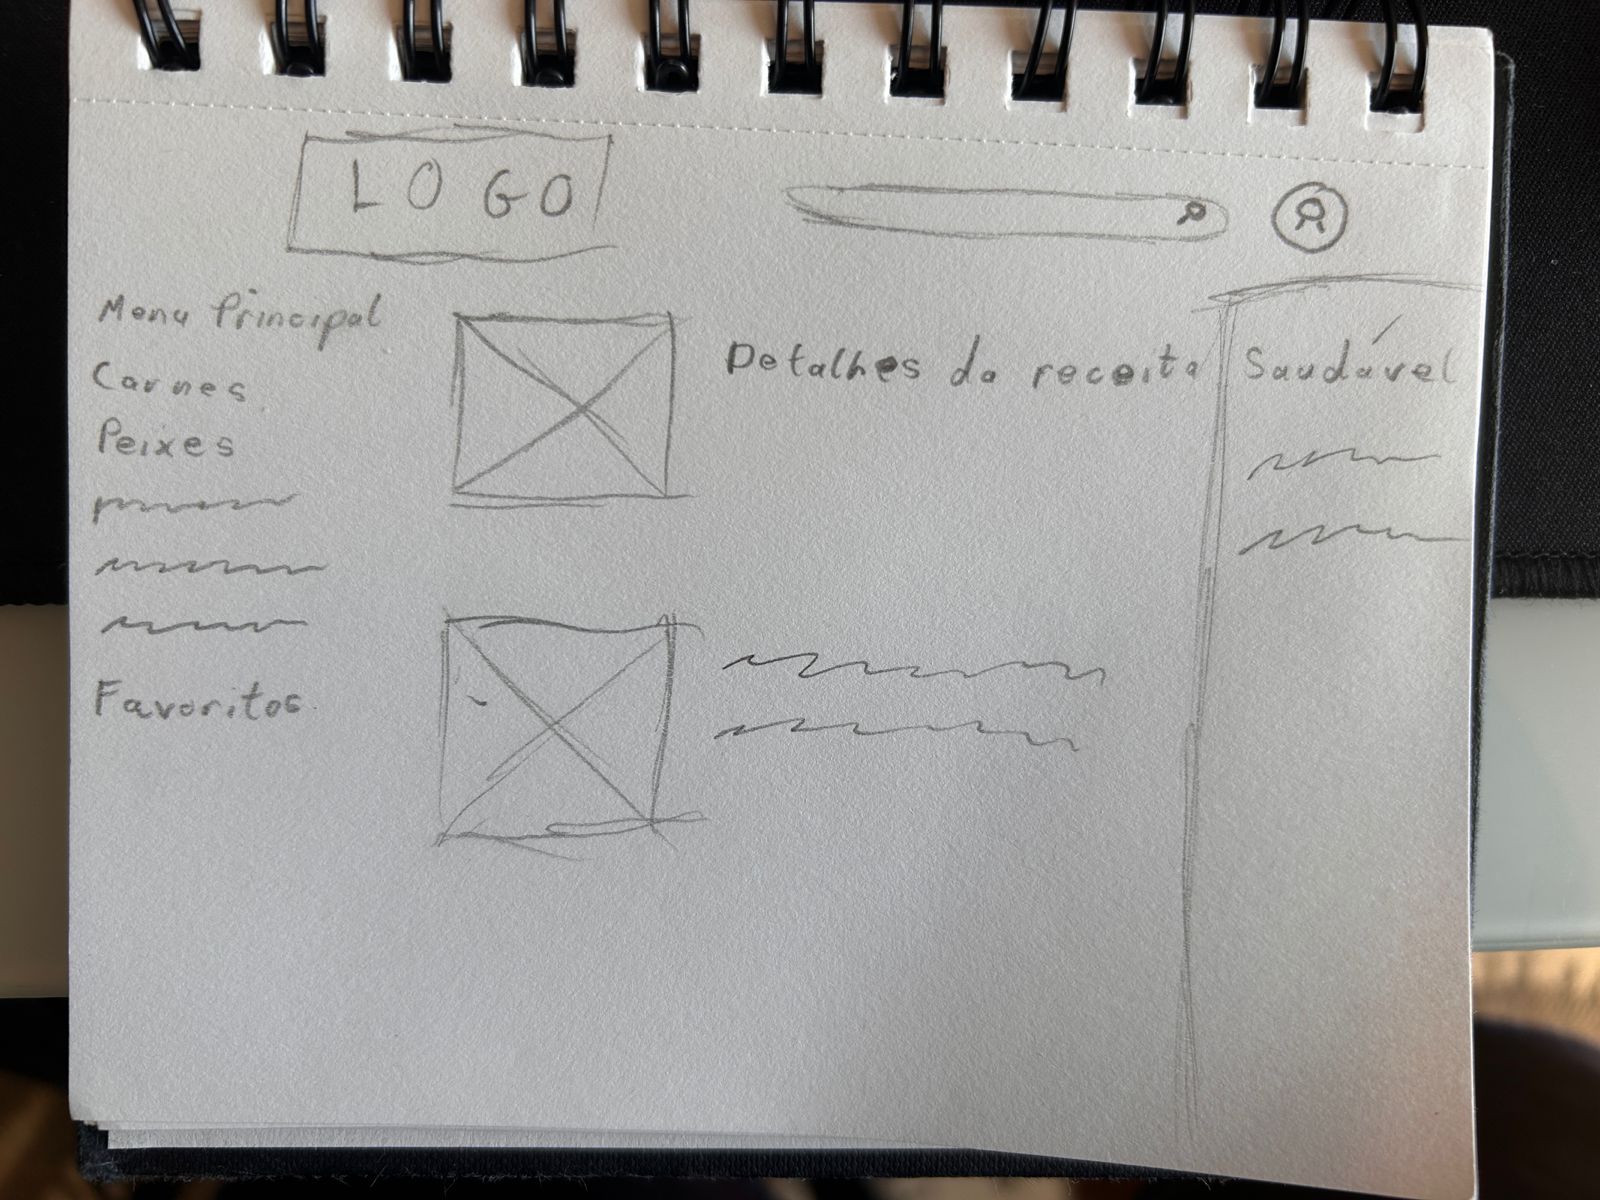 LOGO
Menu Principal
Carnes
Peixes
Favoritos
Detalhes da receita
Saudável